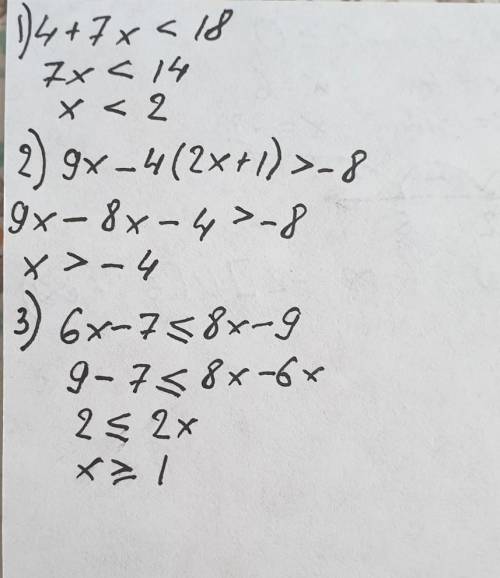 1) 4 + 7x < 18
7x < 14
x < 2
2) 9x - 4(2x+1) > -8
9x - 8x - 4 > -8
x > -4
3) 6x - 7 ≤ 8x - 9
9 - 7 ≤ 8x - 6x
2 ≤ 2x
x ≥ 1